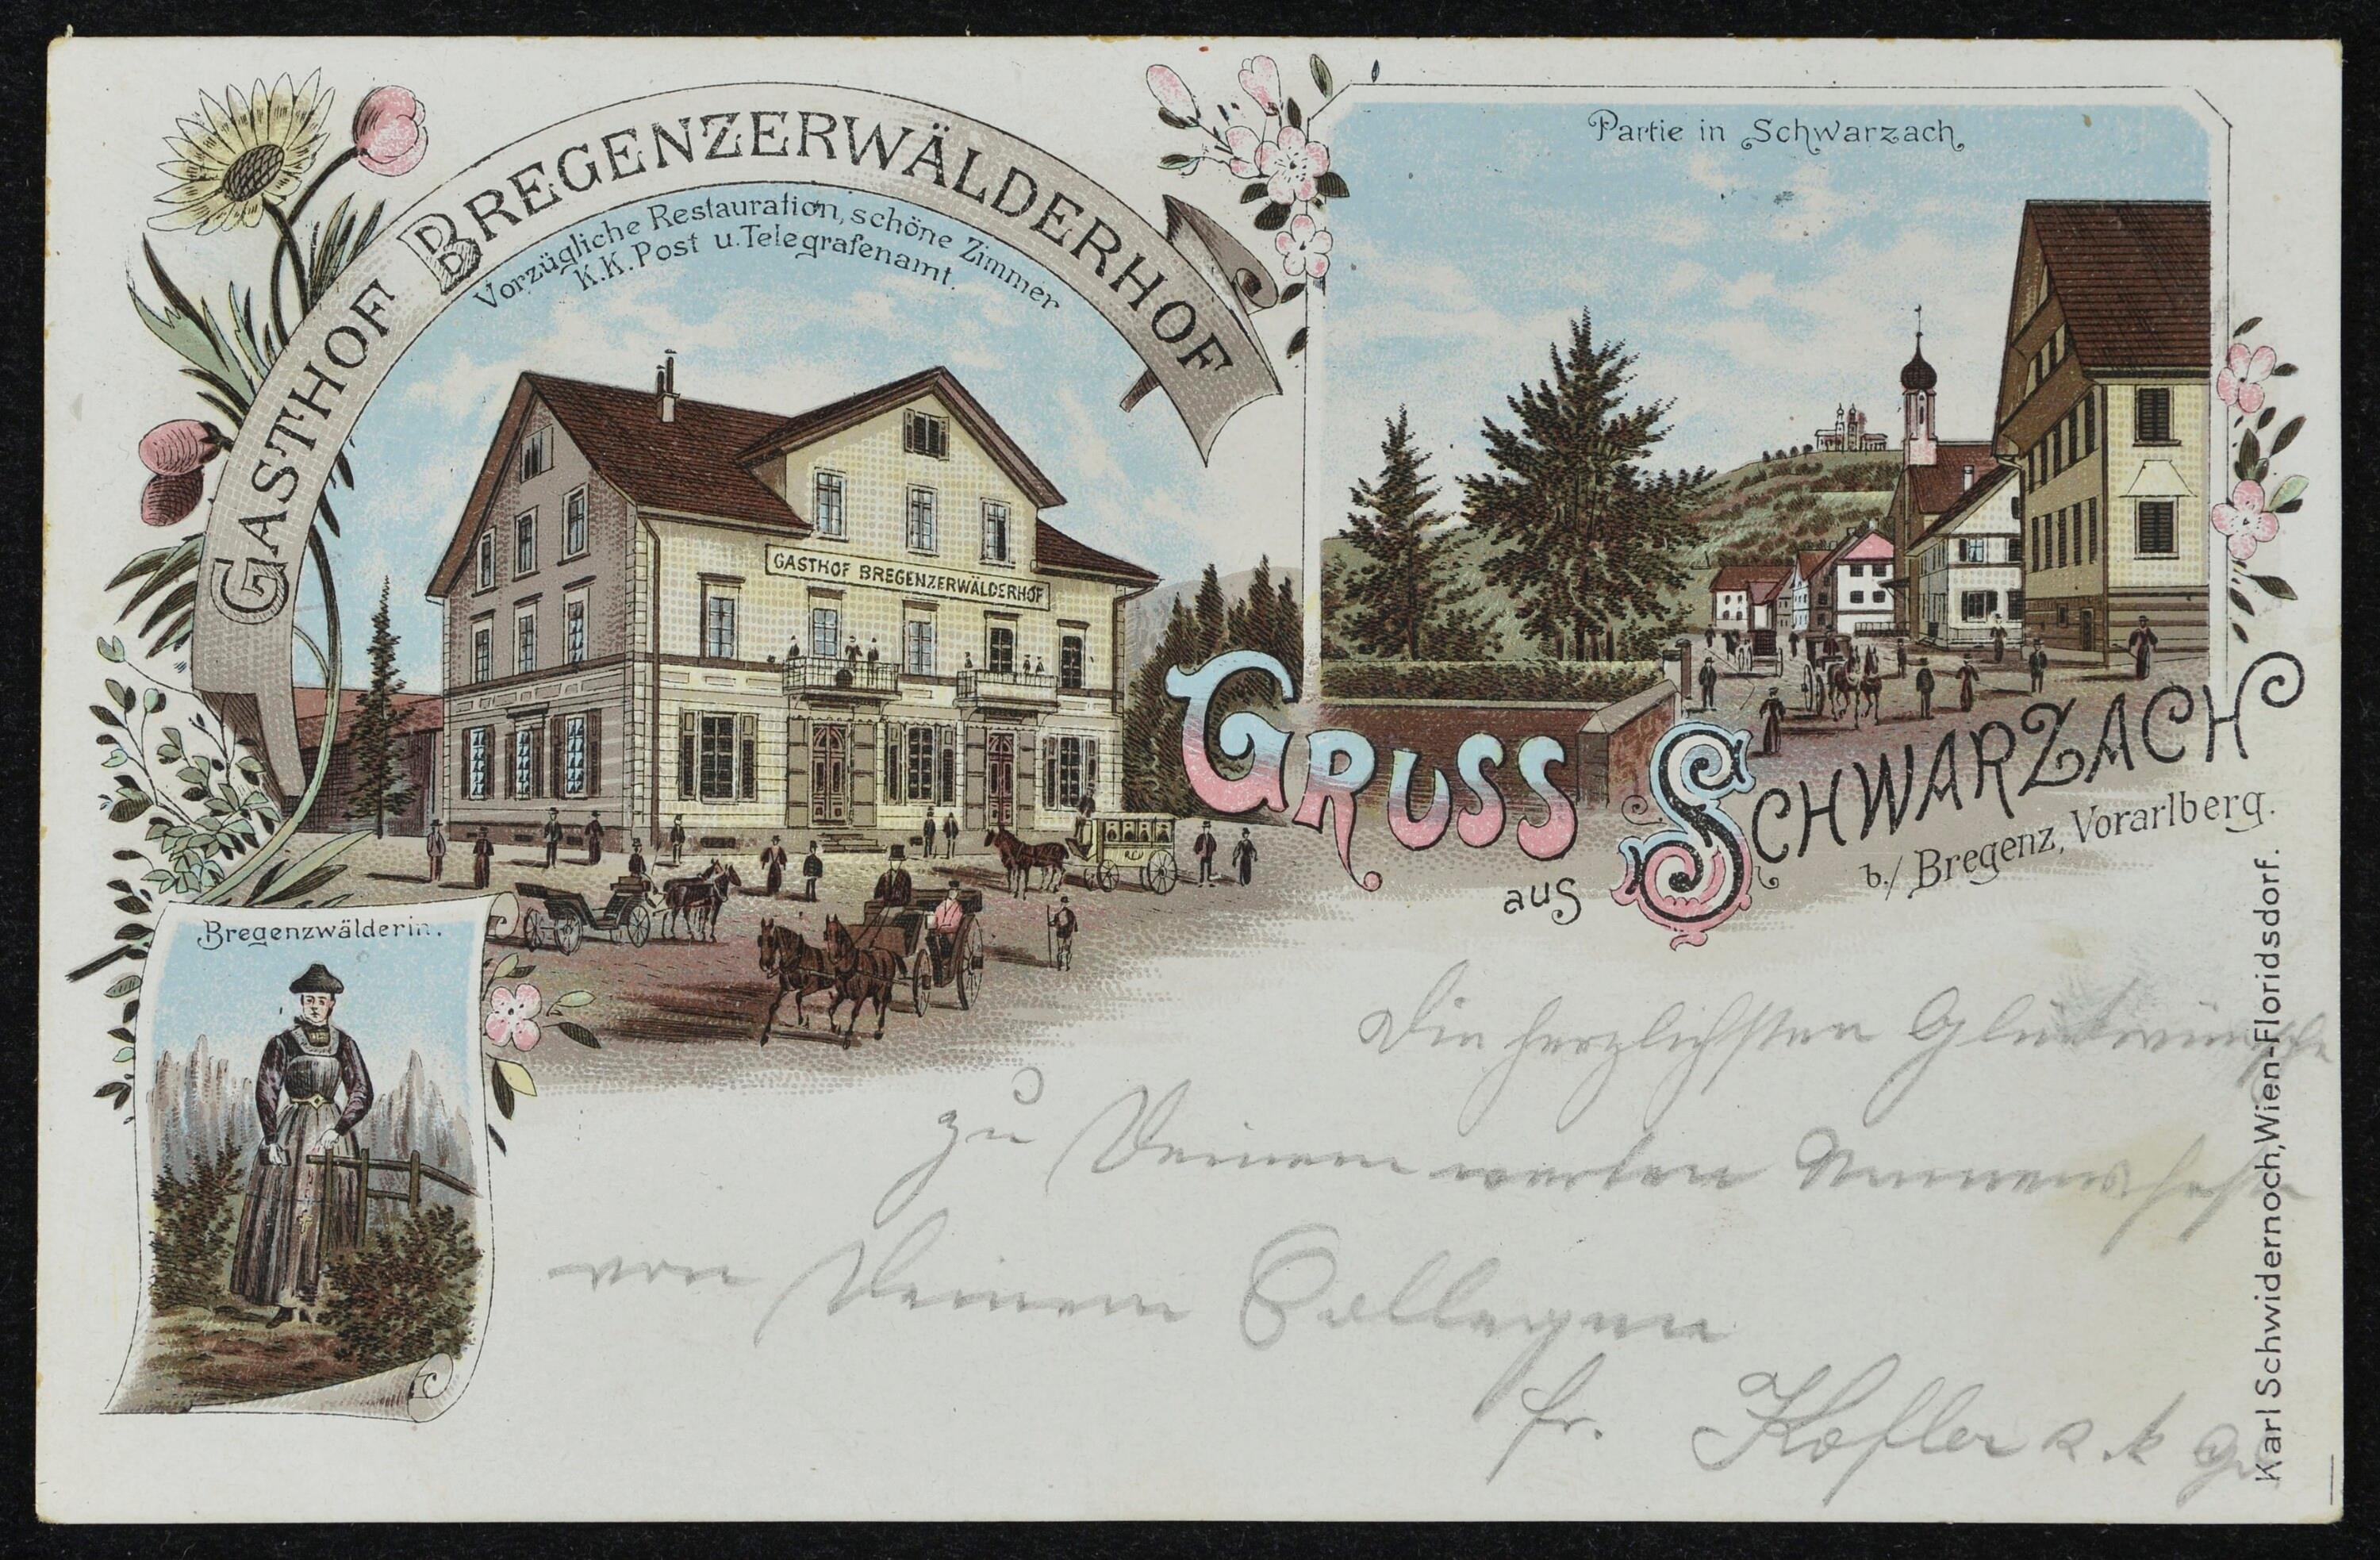 GASTHOF BREGENZERWÄLDERHOF
Vorzügliche Restauration, schöne Zimmer
K.K. Post u. Telegrafenamt.
GASTHOF BREGENZERWÄLDERHOF
Partie in Schwarzach
GRUSS
aus SCHWARZACH
b./ Bregenz, Vorarlberg.
Bregenzwälderin.
Die herzlichsten Glückwünsche
zu Deinem werten Namensfeste
von Deinem Collegen
Fr. Kofler k. k.
Karl Schwidernoch, Wien-Floridsdorf.